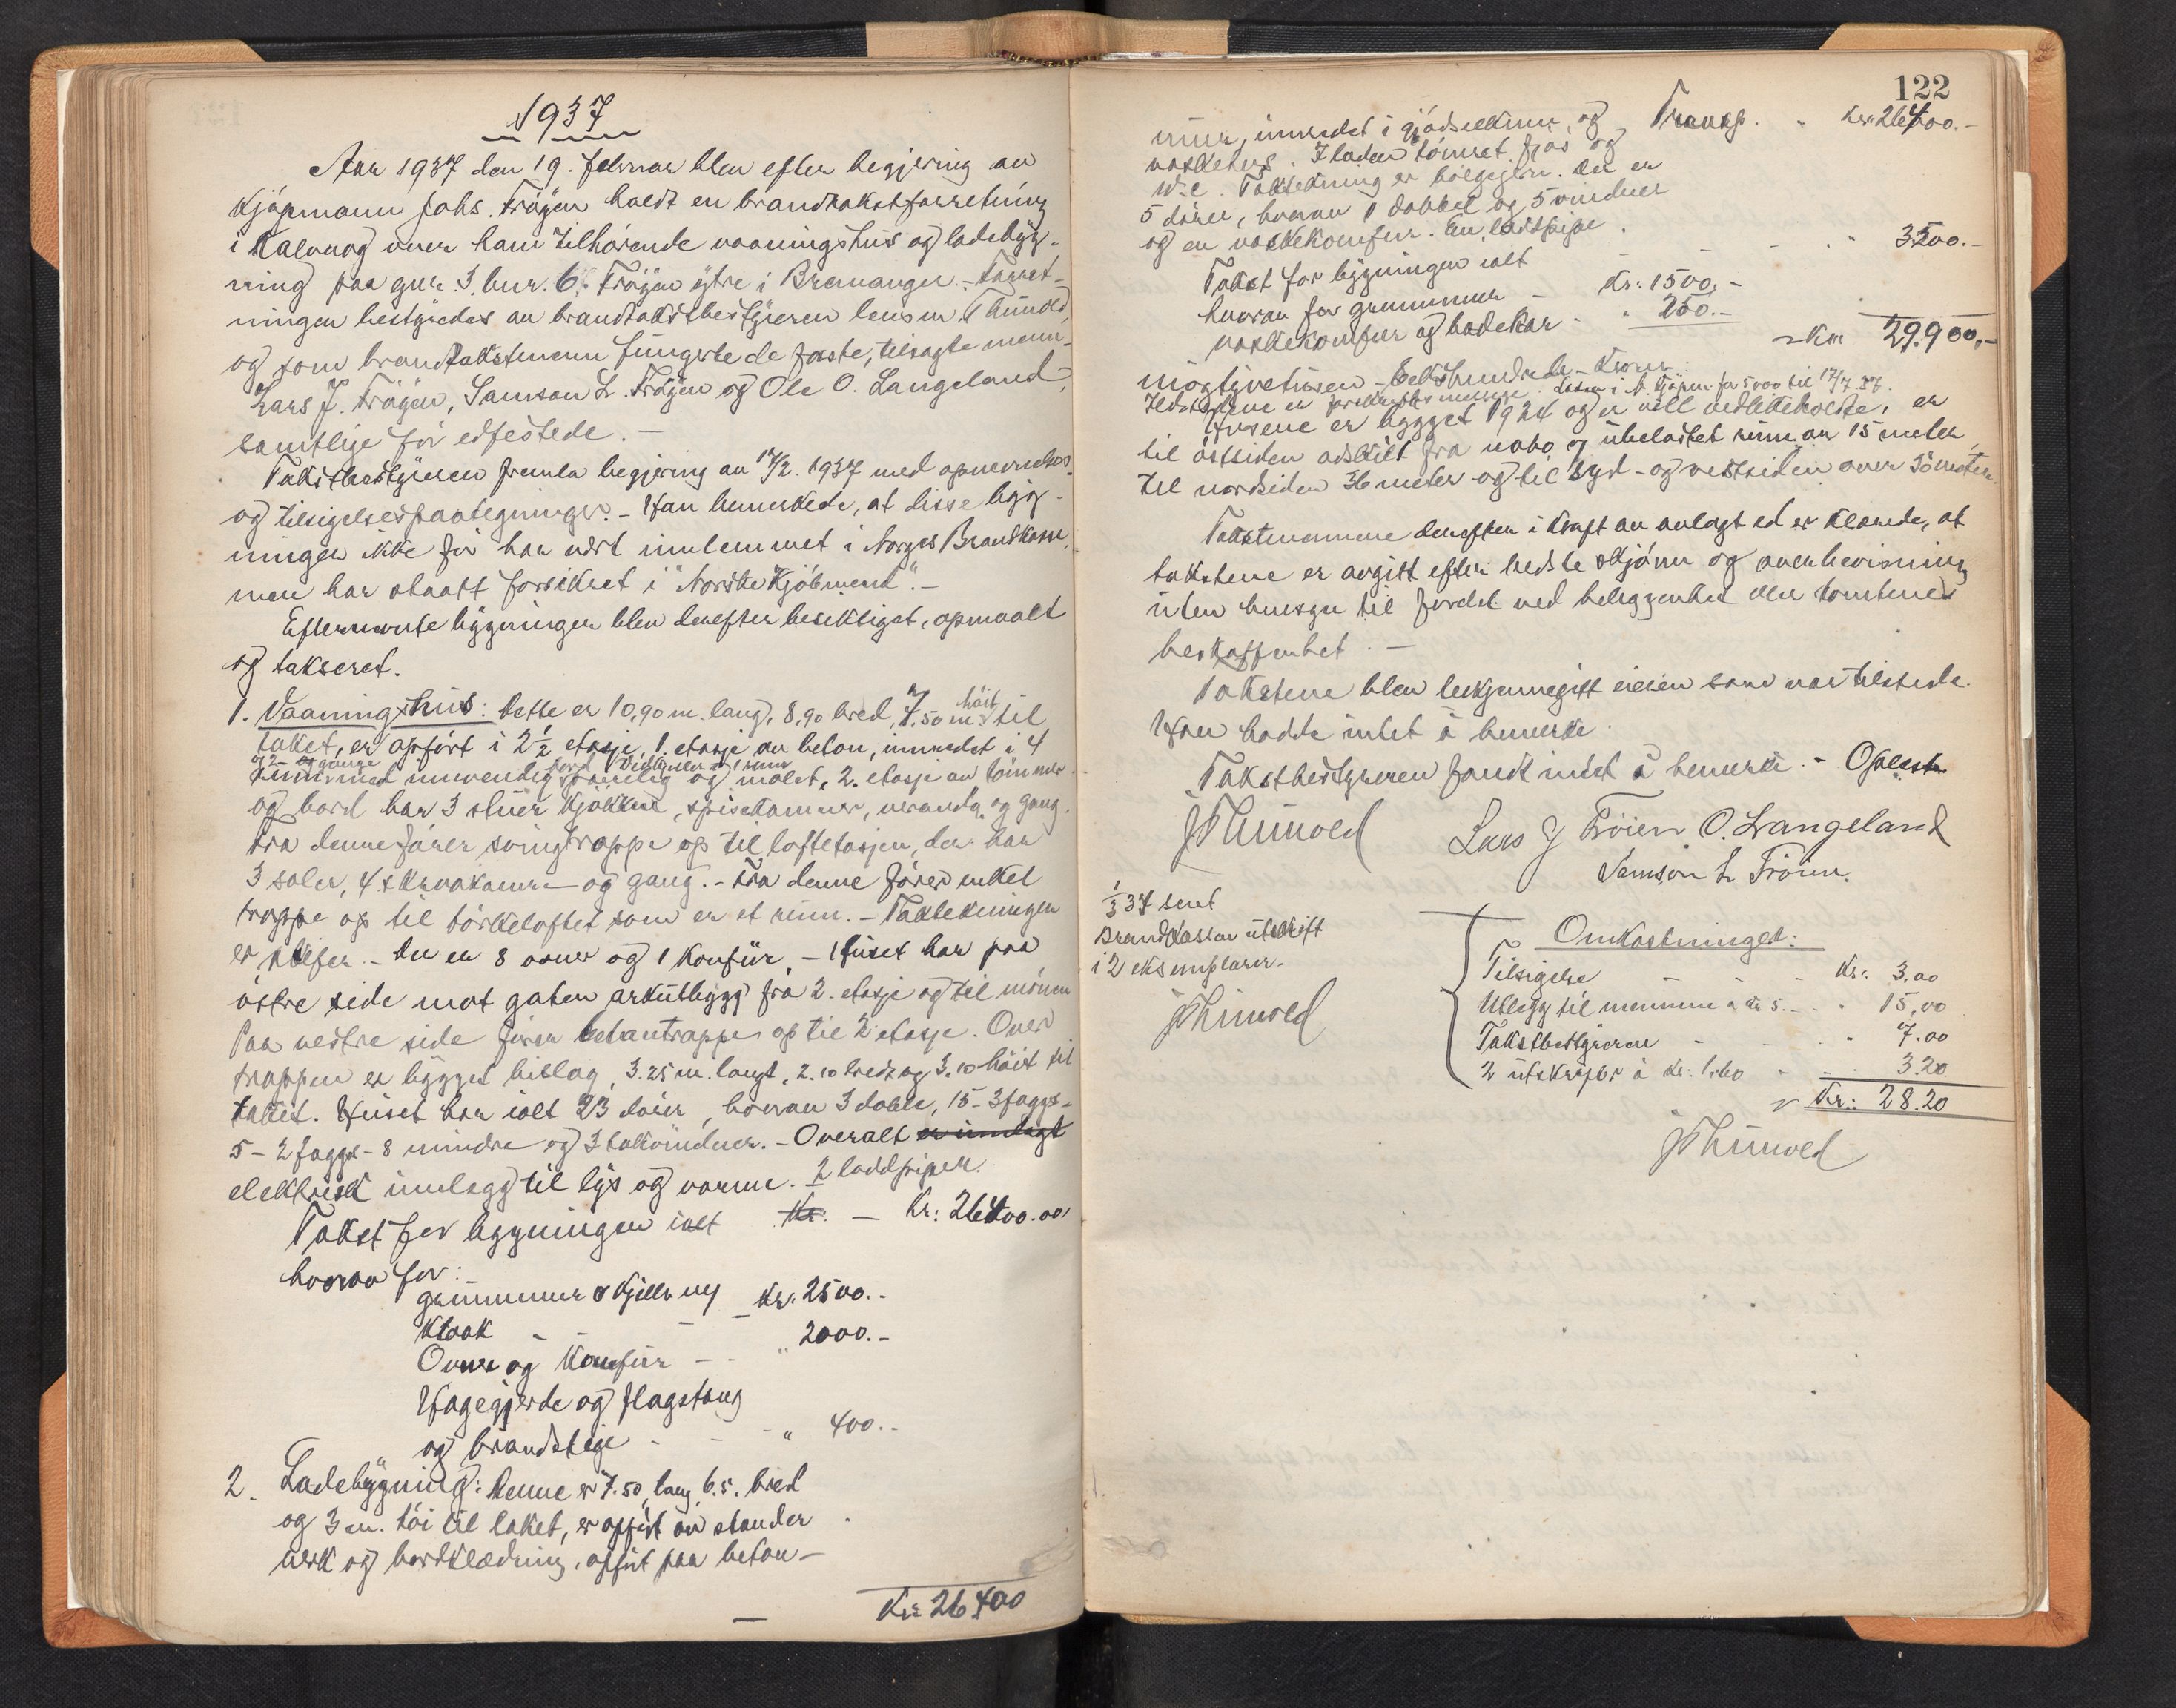 1937
Aar 1937 den 19. februar blev efter begjæring av
kjøpmann Johs. Frøyen holdt en brandtakstforretning
i Kalvaag over ham tilhørende vaaningshus og ladebyg-
ning paa gnr. 3. bnr. 6. Frøyen ytre i Bremanger. - Forret-
ningen bestyredes av brandtakstbestyreren lensm. Thunold,
og som brandtakstmenn fungerte de faste, tilsagte menn-
Lars J. Frøyen, Samson L. Frøyen og Ole O. Langeland,
samtlige før edfestede. -
Takstbestyreren fremla begjæring av 17/2. 1937 med opnevnelses
og tilsigelsespaategninger. - Han bemerkede, at disse byg-
ninger ikke før har vært innlemmet i Norges Brandkasse,
men har staatt forsikret i "Norske Kjøbmend". -
Efternevnte bygninger blev derefter besiktiget, opmaalt
og taksert.
1. Vaaningshus: Dette er 10,90 m. lang, 8,90 bred, 7.50 m. høit til
taket, er opført i 2 1/2 etasje, 1. etasje av beton, innredet i 4
rum med innvendig panelig og malet, 2. etasje av tømmer
og bord har 3 stuer kjøkken, spisekammer, veranda og gang.
Fra denne fører svingtrappe op til loftetasjen, der har
3 saler, 4 skraakamre og gang. - Fra denne fører enkel
trappe op til tørkeloftet som er et rum. - Taktekningen
er skifer. - Der er 8 ovner og 1 komfür, - Huset har paa
østre side mot gaten arkutbygg fra 2. etasje og til mønen
Paa vestre side fører betontrappe op til 2 etasje. Over
trappen er bygget bislag, 3.25 m. langt, 2.10 bredt og 3.10 høit til
taket. Huset har ialt 23 dører, hvorav 3 doble, 15 - 3 faggs-
5 - 2 faggs - 8 mindre og 3 takvinduer. - Overalt er innlagt
elektrisk innlegg til lys og varme. 2 loddpiper.
Takst for bygningen ialt Kr. — Kr: 26400.00
hvorav for:
grunnmur & kjeller Kr. 2500.-
Kloak
Ovner og komfür - - " 2000.-
Hagegjerde og flagstang
og brandstige - - - " 400.-
2. Ladebygning: Denne er 7.50 lang, 6.5. bred
og 3 m. høi til taket, er opført av stender
verk og bordklædning, opført paa beton -
Kr 26400
122
mur, innredet i gjødselkum, og Transp. " Kr. 26400.-
vaskehus. I laden tømret fjøs og
w.c. Taktekning er bølgejern. Der er
5 dører, hvorav 1 dobbel og 5 vinduer
og en vaskekomfur. En loddpipe.
Takst for bygningen ialt - - - " 3500.-
hvorav for grunnmur - Kr. 1500.-
vaskekomfur og badekar - " 250.-
Kr 29.900,-
Ildstedene er forskriftsmessige.
Husene er bygget 1924 og er vell vedlikeholdte, er
til østsiden adskilt fra nabo og ubelastet rum av 15 meter,
til nordsiden 36 meter og til syd- og vestsiden over
Takstmennene derefter i kraft av avlagt ed erklærede, at
takstene er avgitt efter bedste skjønn og overbevisning
uten hensyn til fordel ved beliggenhet eller tomtenes
beskaffenhet. -
Takstene blev bekjennegitt eieren som var tilstede.
Han hadde intet å bemerke.
Takstbestyreren fandt intet å bemerke. - Oplest.
JThunold Lars J Frøien O. Langeland
Samson L Frøien.
1/3 37 sent
Brandkassen utskrift
i 2 eksemplarer.
JThunold
Omkostninger:
Tilsigelse - - - Kr: 3.00
Utlegg til mennene a kr 5. - " 15,00
Takstbestyreren - - - " 7.00
2 utskrifter à Kr. 1.60 - - 3.20
Kr.: 28.20
JThunold